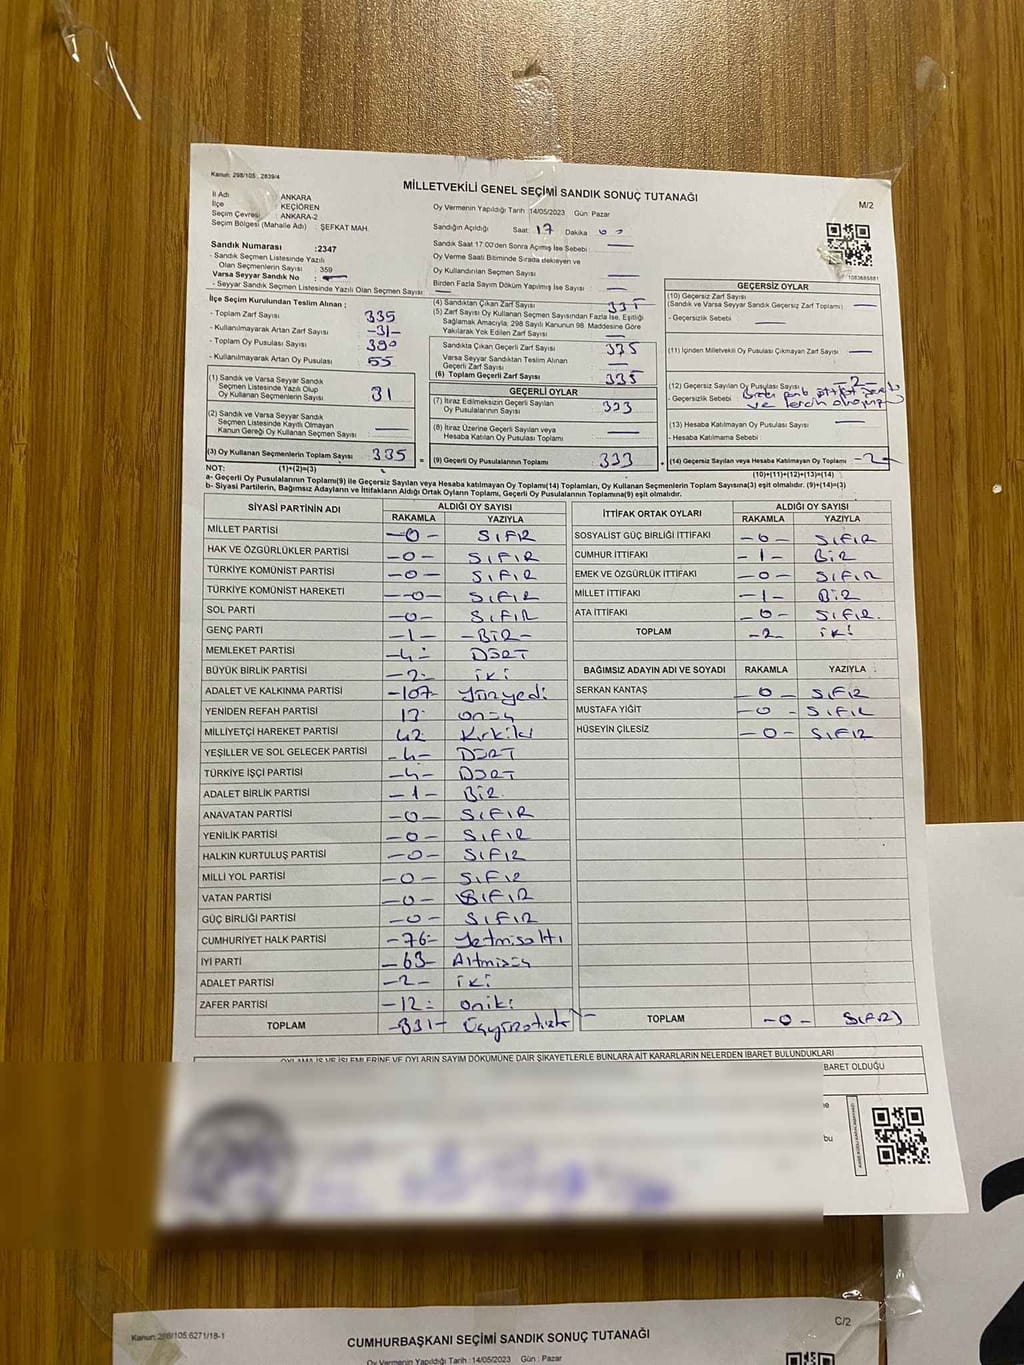 Kanun: 298/105 , 2839/4
MİLLETVEKİLİ GENEL SEÇİMİ SANDIK SONUÇ TUTANAĞI
M/2
İl Adı : ANKARA
İlçe : KEÇİÖREN
Seçim Çevresi : ANKARA-2
Seçim Bölgesi (Mahalle Adı) : ŞEFKAT MAH.
Sandık Numarası :2347
- Sandık Seçmen Listesinde Yazılı
Olan Seçmenlerin Sayısı : 359
Varsa Seyyar Sandık No :
- Seyyar Sandık Seçmen Listesinde Yazılı Olan Seçmen Sayısı:
Oy Vermenin Yapıldığı Tarih :14/05/2023 Gün: Pazar
Sandığın Açıldığı Saat: 17 Dakika
Sandık Saat 17:00'den Sonra Açımış İse Sebebi :
Oy Verme Saati Bitiminde Sırada Bekleyen ve
Oy Kullandırılan Seçmen Sayısı
Birden Fazla Sayım Döküm Yapılmış İse Sayısı :
İlçe Seçim Kurulundan Teslim Alınan ;
- Toplam Zarf Sayısı 335
- Kullanılmayarak Artan Zarf Sayısı -31-
- Toplam Oy Pusulası Sayısı 390
- Kullanılmayarak Artan Oy Pusulası 55
(1) Sandık ve Varsa Seyyar Sandık
Seçmen Listesinde Yazılı Olup
Oy Kullanan Seçmenlerin Sayısı 31
(2) Sandık ve Varsa Seyyar Sandık
Seçmen Listesinde Kayıtlı Olmayan
Kanun Gereği Oy Kullanan Seçmen Sayısı
(3) Oy Kullanan Seçmenlerin Toplam Sayısı 335
(4) Sandıktan Çıkan Zarf Sayısı 335
(5) Zarf Sayısı Oy Kullanan Seçmen Sayısından Fazla İse, Eşitliği
Sağlamak Amacıyla, 298 Sayılı Kanunun 98. Maddesine Göre
Yakılarak Yok Edilen Zarf Sayısı
Sandıkta Çıkan Geçerli Zarf Sayısı 335
Varsa Seyyar Sandıktan Teslim Alınan
Geçerli Zarf Sayısı
(6) Toplam Geçerli Zarf Sayısı 335
GEÇERLİ OYLAR
(7) İtiraz Edilmeksizin Geçerli Sayılan
Oy Pusulalarının Sayısı 333
(8) İtiraz Üzerine Geçerli Sayılan veya
Hesaba Katılan Oy Pusulası Toplamı
= (9) Geçerli Oy Pusulalarının Toplamı 333
1083685881
GEÇERSİZ OYLAR
(10) Geçersiz Zarf Sayısı
(Sandık ve Varsa Seyyar Sandık Geçersiz Zarf Toplamı) :
- Geçersizlik Sebebi :
(11) İçinden Milletvekili Oy Pusulası Çıkmayan Zarf Sayısı
(12) Geçersiz Sayılan Oy Pusulası Sayısı -2-
- Geçersizlik Sebebi
(13) Hesaba Katılmayan Oy Pusulası Sayısı
- Hesaba Katılmama Sebebi :
+ (14) Geçersiz Sayılan veya Hesaba Katılmayan Oy Toplamı -2-
NOT: (1)+(2)=(3)
(10)+(11)+(12)+(13)=(14)
a- Geçerli Oy Pusulalarının Toplamı(9) ile Geçersiz Sayılan veya Hesaba katılmayan Oy Toplamı(14) Toplamları, Oy Kullanan Seçmenlerin Toplam Sayısına(3) eşit olmalıdır. (9)+(14)=(3)
b- Siyasi Partilerin, Bağımsız Adayların ve İttifakların Aldığı Ortak Oyların Toplamı, Geçerli Oy Pusulalarının Toplamına(9) eşit olmalıdır.
SİYASİ PARTİNİN ADI ALDIĞI OY SAYISI
RAKAMLA YAZIYLA
MİLLET PARTİSİ -0- SIFIR
HAK VE ÖZGÜRLÜKLER PARTİSİ -0- SIFIR
TÜRKİYE KOMÜNİST PARTİSİ -0- SIFIR
TÜRKİYE KOMÜNİST HAREKETİ -0- SIFIR
SOL PARTİ -0- SIFIR
GENÇ PARTİ -1- -BİR-
MEMLEKET PARTİSİ -4- DÖRT
BÜYÜK BİRLİK PARTİSİ -2- iki
ADALET VE KALKINMA PARTİSİ -107- Yüzyedi
YENİDEN REFAH PARTİSİ 13- onüç
MİLLİYETÇİ HAREKET PARTİSİ 42 Kırkiki
YEŞİLLER VE SOL GELECEK PARTİSİ -4- DÖRT
TÜRKİYE İŞÇİ PARTİSİ -4- DÖRT
ADALET BİRLİK PARTİSİ -1- BİR
ANAVATAN PARTİSİ -0- SIFIR
YENİLİK PARTİSİ -0- SIFIR
HALKIN KURTULUŞ PARTİSİ -0- SIFIR
MİLLİ YOL PARTİSİ -0- SIFIR
VATAN PARTİSİ -0- SIFIR
GÜÇ BİRLİĞİ PARTİSİ -0- SIFIR
CUMHURİYET HALK PARTİSİ -76- Yetmişaltı
İYİ PARTİ -63- Altmışüç
ADALET PARTİSİ -2- iki
ZAFER PARTİSİ -12- oniki
TOPLAM -331- Üçyüzotuzbir
İTTİFAK ORTAK OYLARI ALDIĞI OY SAYISI
RAKAMLA YAZIYLA
SOSYALİST GÜÇ BİRLİĞİ İTTİFAKI -0- SIFIR
CUMHUR İTTİFAKI -1- BİR
EMEK VE ÖZGÜRLÜK İTTİFAKI -0- SIFIR
MİLLET İTTİFAKI -1- BİR
ATA İTTİFAKI -0- SIFIR.
TOPLAM -2- iki
BAĞIMSIZ ADAYIN ADI VE SOYADI RAKAMLA YAZIYLA :
SERKAN KANTAŞ -0- SIFIR
MUSTAFA YİĞİT -0- SIFIR
HÜSEYİN ÇİLESİZ -0- SIFIR
TOPLAM -0- SIFIR
OYLAMA İŞ VE İŞLEMLERİNE VE OYLARIN SAYIM DÖKÜMÜNE DAİR ŞİKAYETLERLE BUNLARA AİT KARARLARIN NELERDEN İBARET BULUNDUKLARI
BARET OLDUĞU
bu
Kanun: 298/105,6271/18-1
C/2
CUMHURBAŞKANI SEÇİMİ SANDIK SONUÇ TUTANAĞI
Oy Vermenin Yapıldığı Tarih :14/05/2023 Gün : Pazar